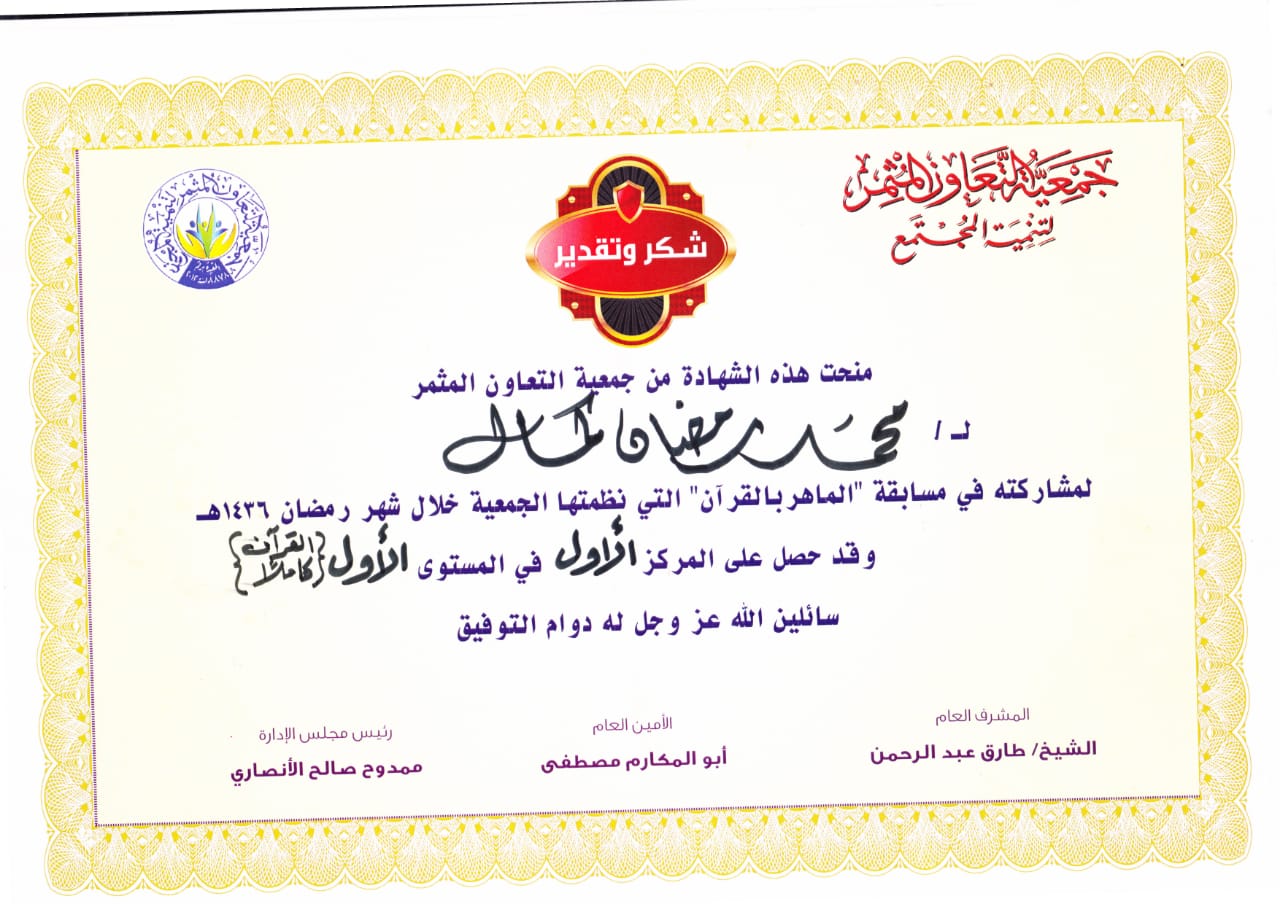 جمعية التعاون المثمر
لتنمية المجتمع
شكر وتقدير
منحت هذه الشهادة من جمعية التعاون المثمر
لـ / محمد رمضان كمال
لمشاركته في مسابقة "الماهر بالقرآن" التي نظمتها الجمعية خلال شهر رمضان ١٤٣٦هـ
وقد حصل على المركز الأول في المستوى الأول {القرآن كاملا}
سائلين الله عز وجل له دوام التوفيق
المشرف العام
الشيخ/ طارق عبد الرحمن
الأمين العام
أبو المكارم مصطفى
رئيس مجلس الإدارة
ممدوح صالح الأنصاري